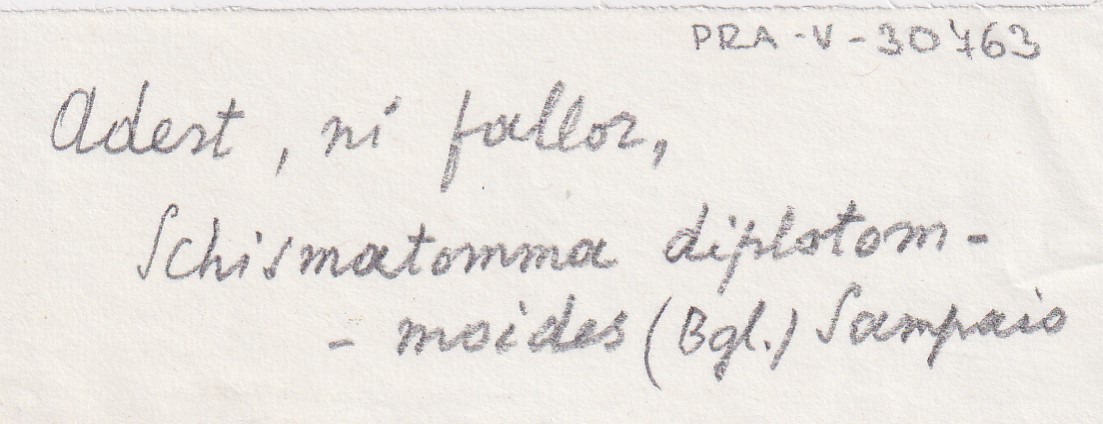 PRA-V-30763
Adest, ni fallor,
Schismatomma diplotom-
- moides (Bgl.) Sampaio